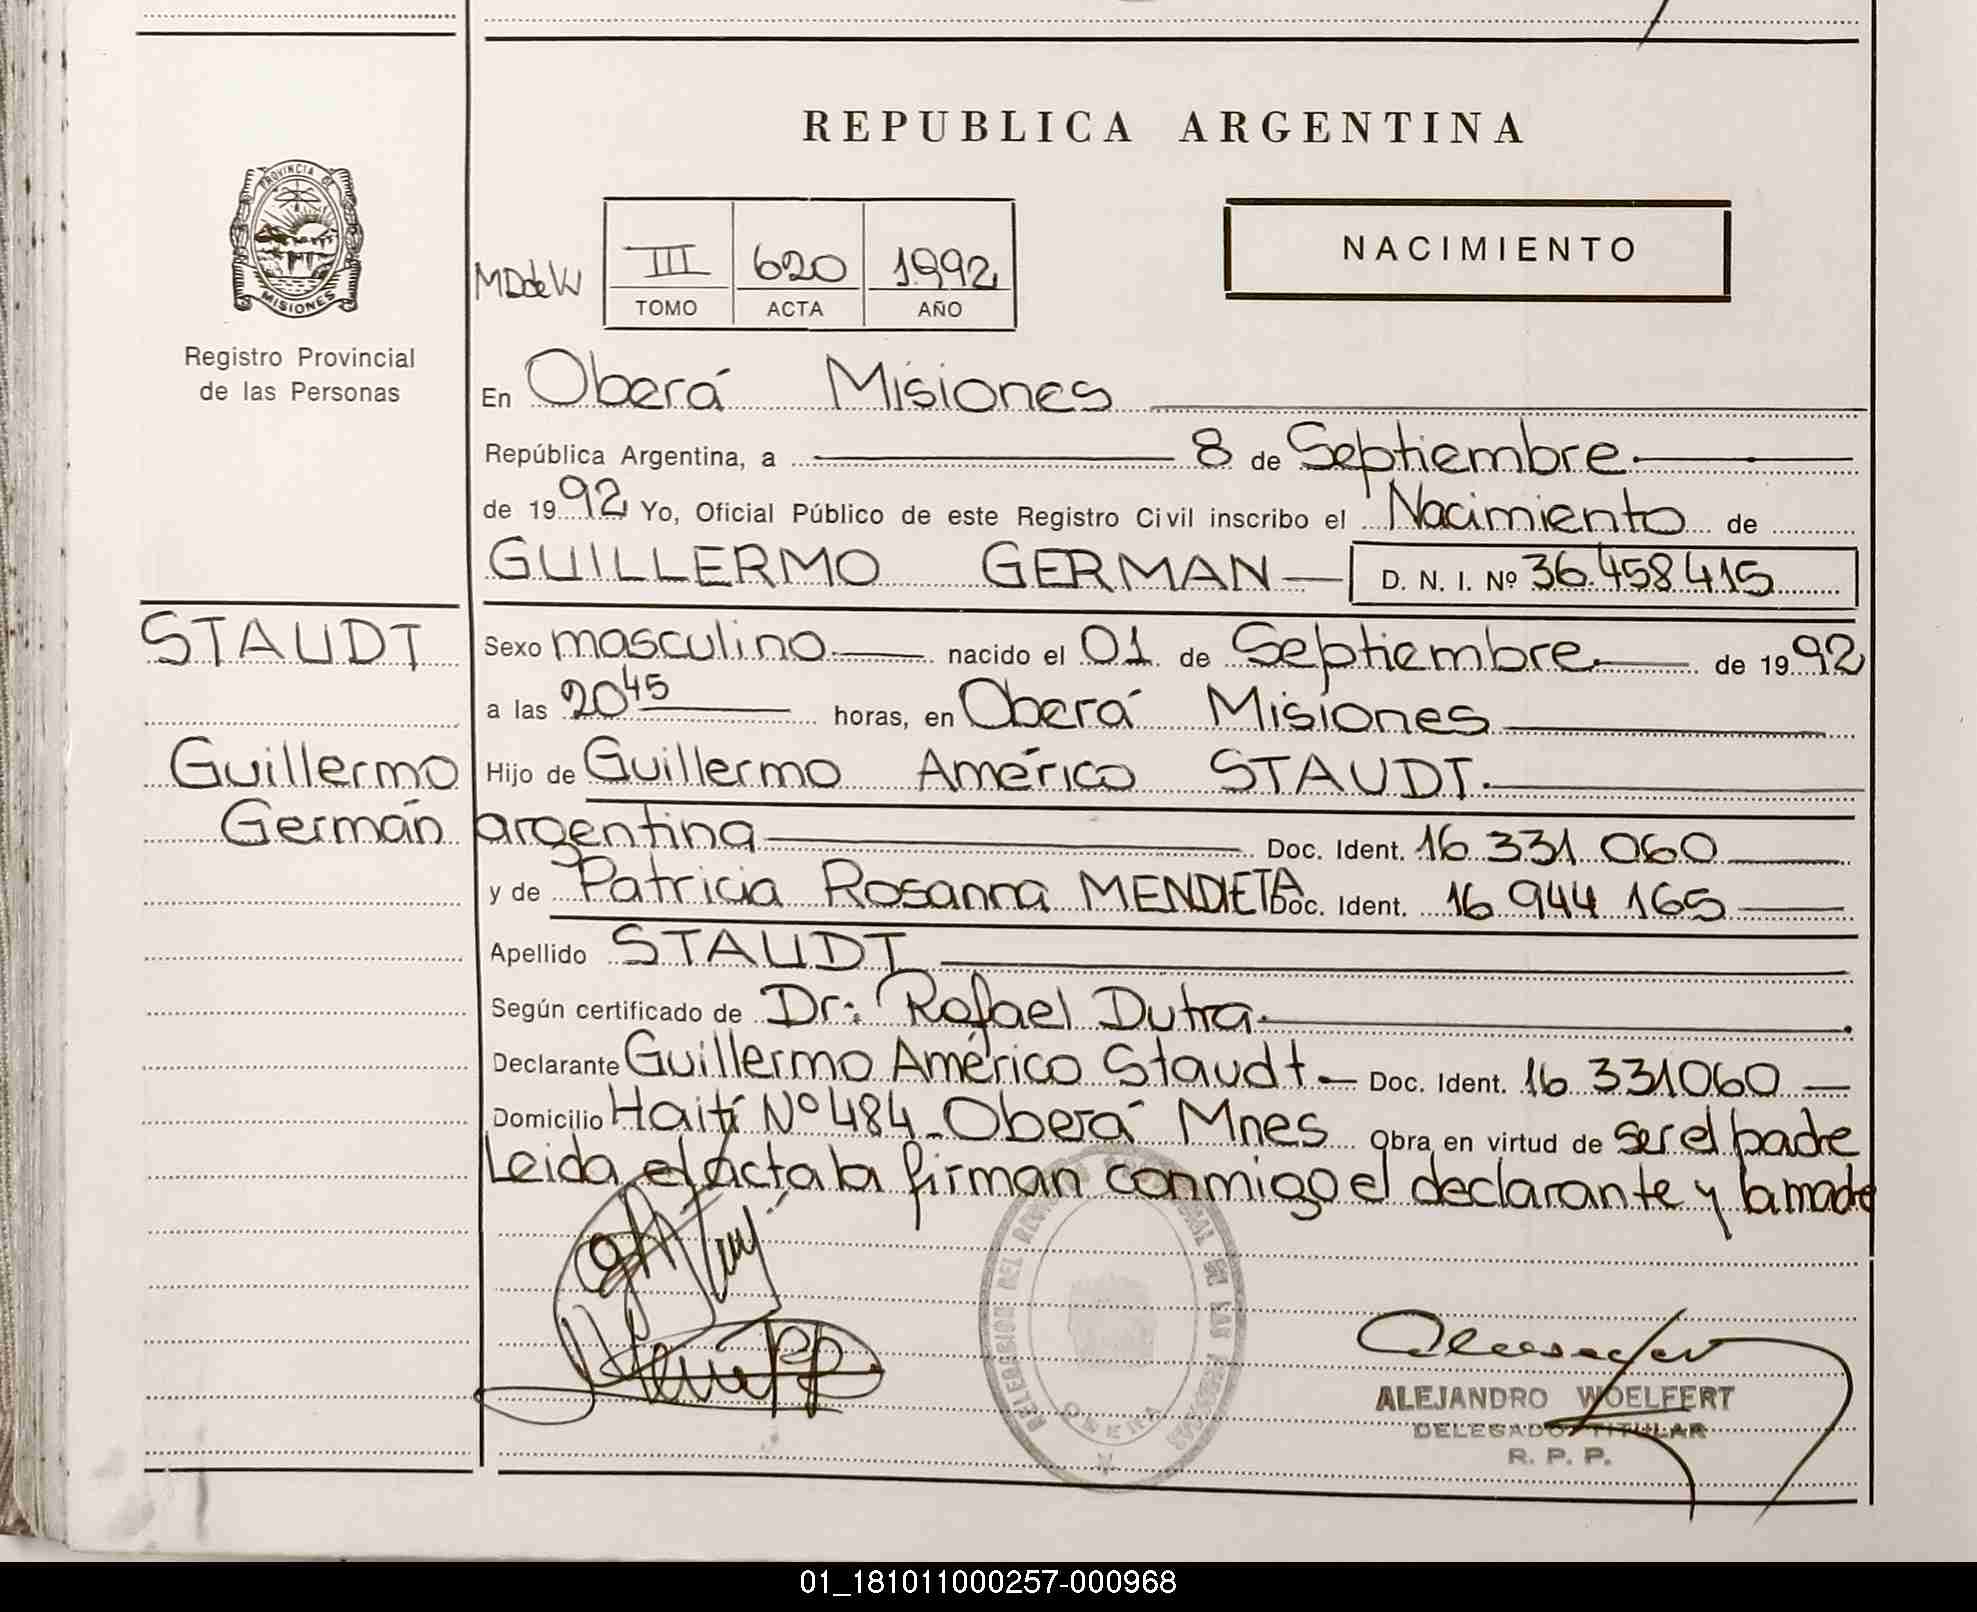 REPUBLICA ARGENTINA
PROVINCIA DE
MISIONES
Registro Provincial
de las Personas
MDdeW
III 620 1992
TOMO ACTA AÑO
NACIMIENTO
En Oberá Misiones
República Argentina, a 8 de Septiembre
de 1992 Yo, Oficial Público de este Registro Civil inscribo el Nacimiento de
GUILLERMO GERMAN D. N. I. Nº 36.458.415
STAUDT
Guillermo
Germán
Sexo masculino nacido el 01 de Septiembre de 1992
a las 20 45 horas, en Oberá Misiones
Hijo de Guillermo Américo STAUDT.
argentina Doc. Ident. 16 331 060
y de Patricia Rosanna MENDIETA Doc. Ident. 16 944 165
Apellido STAUDT
Según certificado de Dr: Rafael Dutra.
Declarante Guillermo Américo Staudt Doc. Ident. 16 331060
Domicilio Haití Nº 484 - Oberá Mnes Obra en virtud de ser el padre
Leida el acta la firman conmigo el declarante y la madre
DELEGACION DEL REGISTRO PROVINCIAL DE LAS PERSONAS
OBERA
ALEJANDRO WOELFERT
DELEGADO TITULAR
R. P. P.
01_181011000257-000968